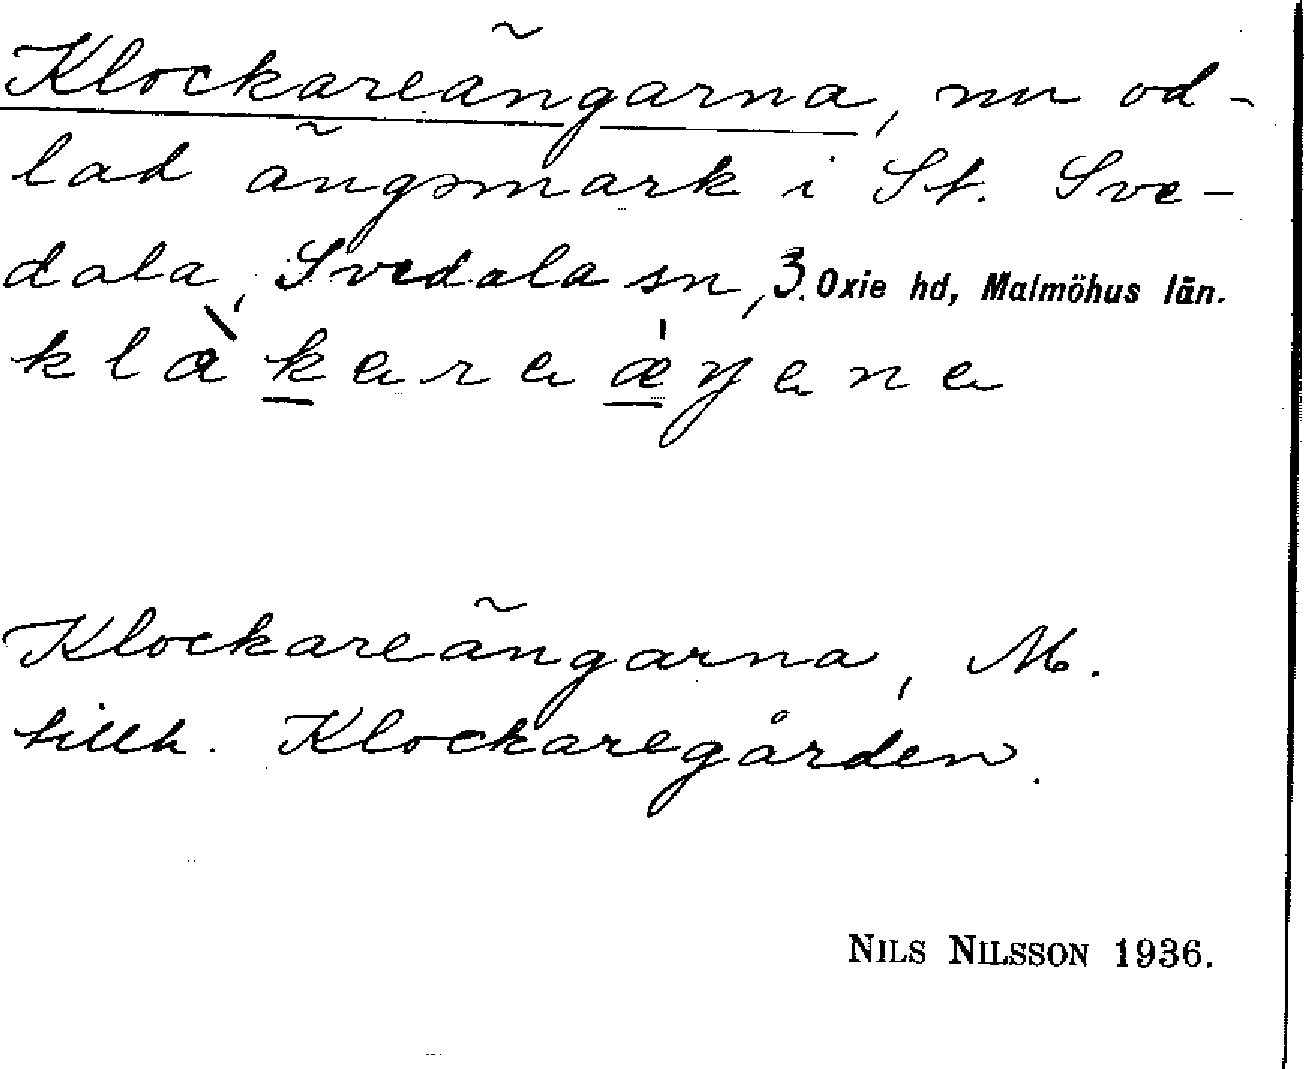 Klockareängarna, nu od-
lad ängsmark i St. Sve-
dala, Svedala sn, 3. Oxie hd, Malmöhus län.
Klockareängarna, M.
tillh. Klockaregården.
NILS NILSSON 1936.